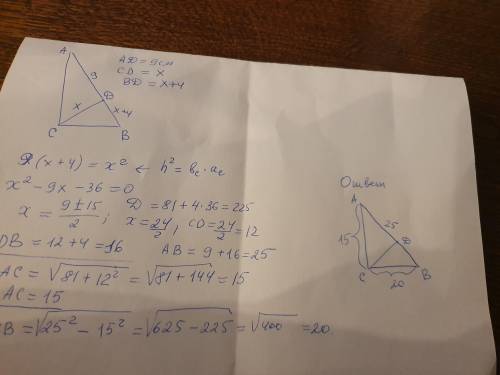 A
9
D
x
x+4
C
B
AD = 9см
CD = x
BD = x+4
9(x+4) = x² ← h² = b_c · a_c
x² - 9x - 36 = 0
x = (9 ± 15)/2 ; D = 81 + 4·36 = 225
x = 24/2, CD = 24/2 = 12
DB = 12 + 4 = 16 AB = 9 + 16 = 25
AC = √(81 + 12²) = √(81 + 144) = 15
AC = 15
CB = √(25² - 15²) = √(625 - 225) = √400 = 20.
Ответ
A
25
15
D
C
B
20